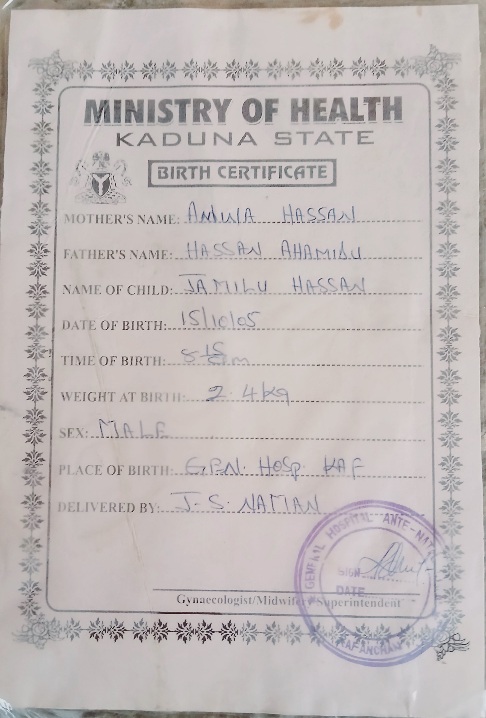 MINISTRY OF HEALTH
KADUNA STATE
BIRTH CERTIFICATE
MOTHER'S NAME: AMINA HASSAN
FATHER'S NAME: HASSAN AHAMIDU
NAME OF CHILD: JAMILU HASSAN
DATE OF BIRTH: 15/10/05
TIME OF BIRTH:
WEIGHT AT BIRTH: 2.4kg
SEX: MALE
PLACE OF BIRTH: GEN. HOSP. KAF
DELIVERED BY: J.S. NAMAN
GENERAL HOSPITAL ANTE-NAT
SIGN
DATE
KAFANCHAN
Gynaecologist/Midwifery Superintendent